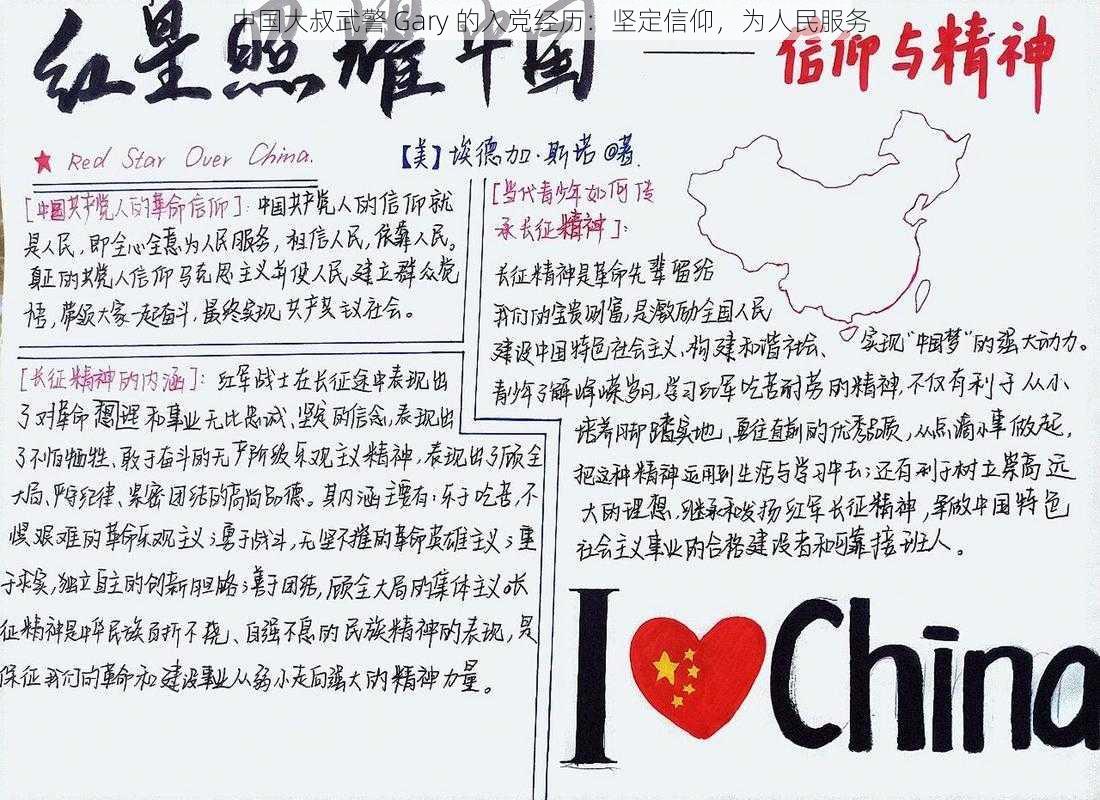 中国大叔武警 Gary 的入党经历：坚定信仰，为人民服务
红星照耀中国 —— 信仰与精神
★ Red Star Over China.
【美】埃德加·斯诺◎著.
[中国共产党人的革命信仰]：中国共产党人的信仰就
是人民，即全心全意为人民服务，相信人民，依靠人民。
真正的共党人信仰马克思主义并使人民建立群众觉
悟，带领大家一起奋斗，最终实现共产主义社会。
[长征精神的内涵]：红军战士在长征途中表现出
了对革命理想和事业无比忠诚、坚定的信念，表现出
了不怕牺牲、敢于奋斗的无产阶级乐观主义精神，表现出了顾全
大局、严守纪律、紧密团结的高尚品德。其内涵主要有：乐于吃苦，不
惧艰难的革命乐观主义；勇于战斗，无坚不摧的革命英雄主义；重
于求实，独立自主的创新胆略；善于团结，顾全大局的集体主义。长
征精神是中华民族百折不挠、自强不息的民族精神的表现，是
保证我们的革命和建设事业从弱小走向强大的精神力量。
[当代青少年如何传
承长征精神]：
长征精神是革命先辈留给
我们的宝贵财富，是激励全国人民
建设中国特色社会主义、构建和谐社会、实现“中国梦”的强大动力。
青少年了解峥嵘岁月，学习红军吃苦耐劳的精神，不仅有利于从小
培养脚踏实地、勇往直前的优秀品质，从点滴小事做起，
把这种精神运用到生活与学习中去；还有利于树立崇高远
大的理想，继承和发扬红军长征精神，争做中国特色
社会主义事业的合格建设者和可靠接班人。
I China